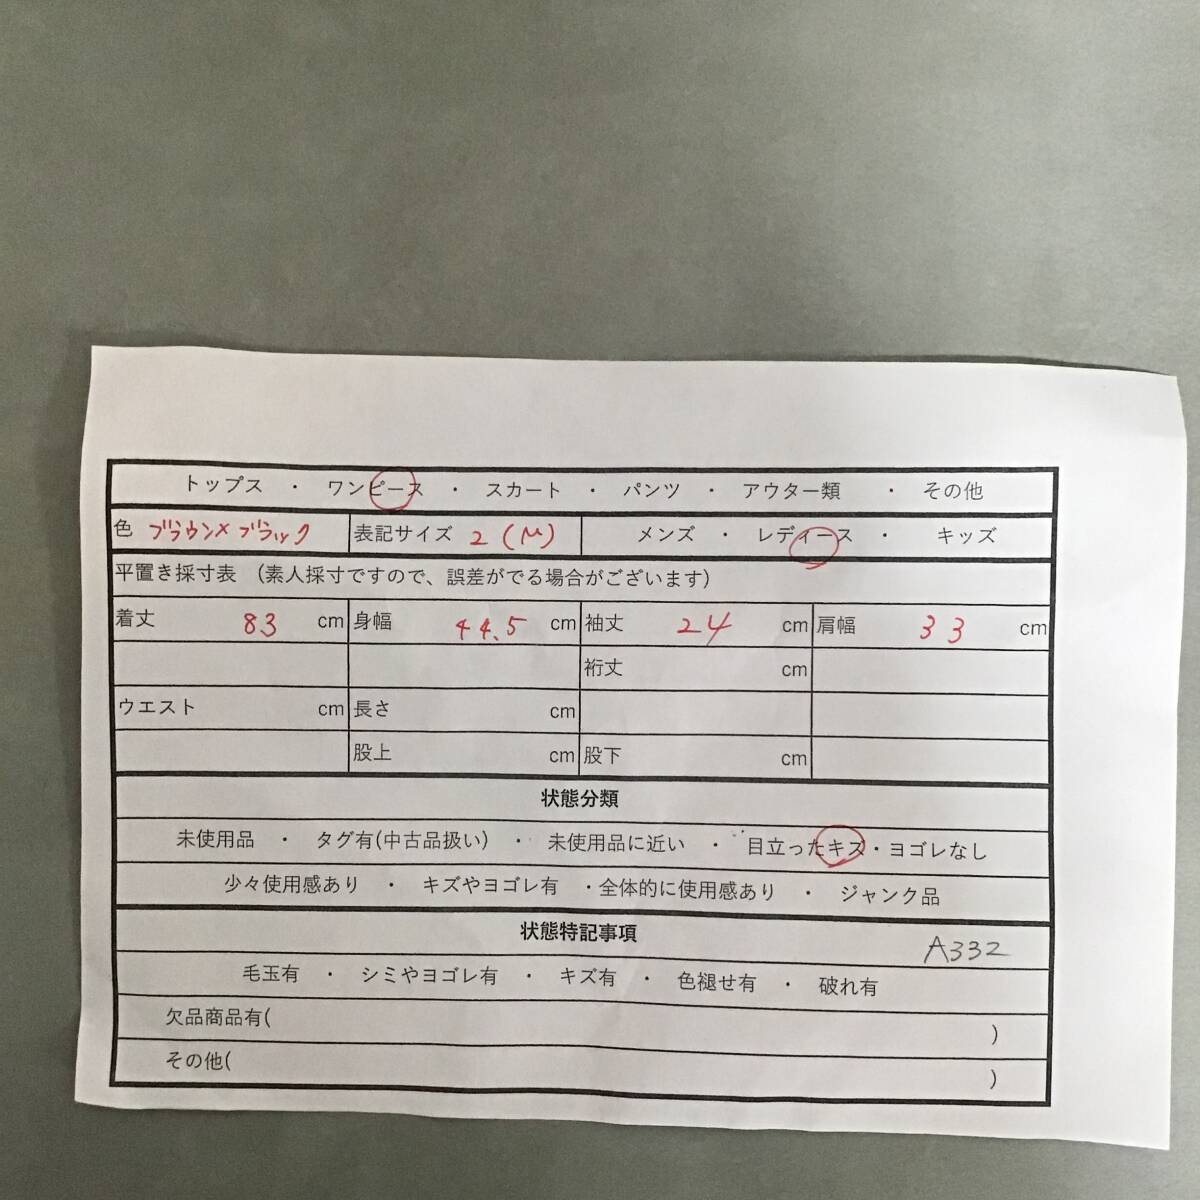 トップス ・ ワンピース ・ スカート ・ パンツ ・ アウター類 ・ その他
色 ブラウン×ブラック 表記サイズ 2(M) メンズ ・ レディース ・ キッズ
平置き採寸表 (素人採寸ですので、誤差がでる場合がございます)
着丈 83 cm 身幅 44.5 cm 袖丈 24 cm 肩幅 33 cm
裄丈 cm
ウエスト cm 長さ cm
股上 cm 股下 cm
状態分類
未使用品 ・ タグ有(中古品扱い) ・ 未使用品に近い ・ 目立ったキズ・ヨゴレなし
少々使用感あり ・ キズやヨゴレ有 ・全体的に使用感あり ・ ジャンク品
状態特記事項 A332
毛玉有 ・ シミやヨゴレ有 ・ キズ有 ・ 色褪せ有 ・ 破れ有
欠品商品有( )
その他( )